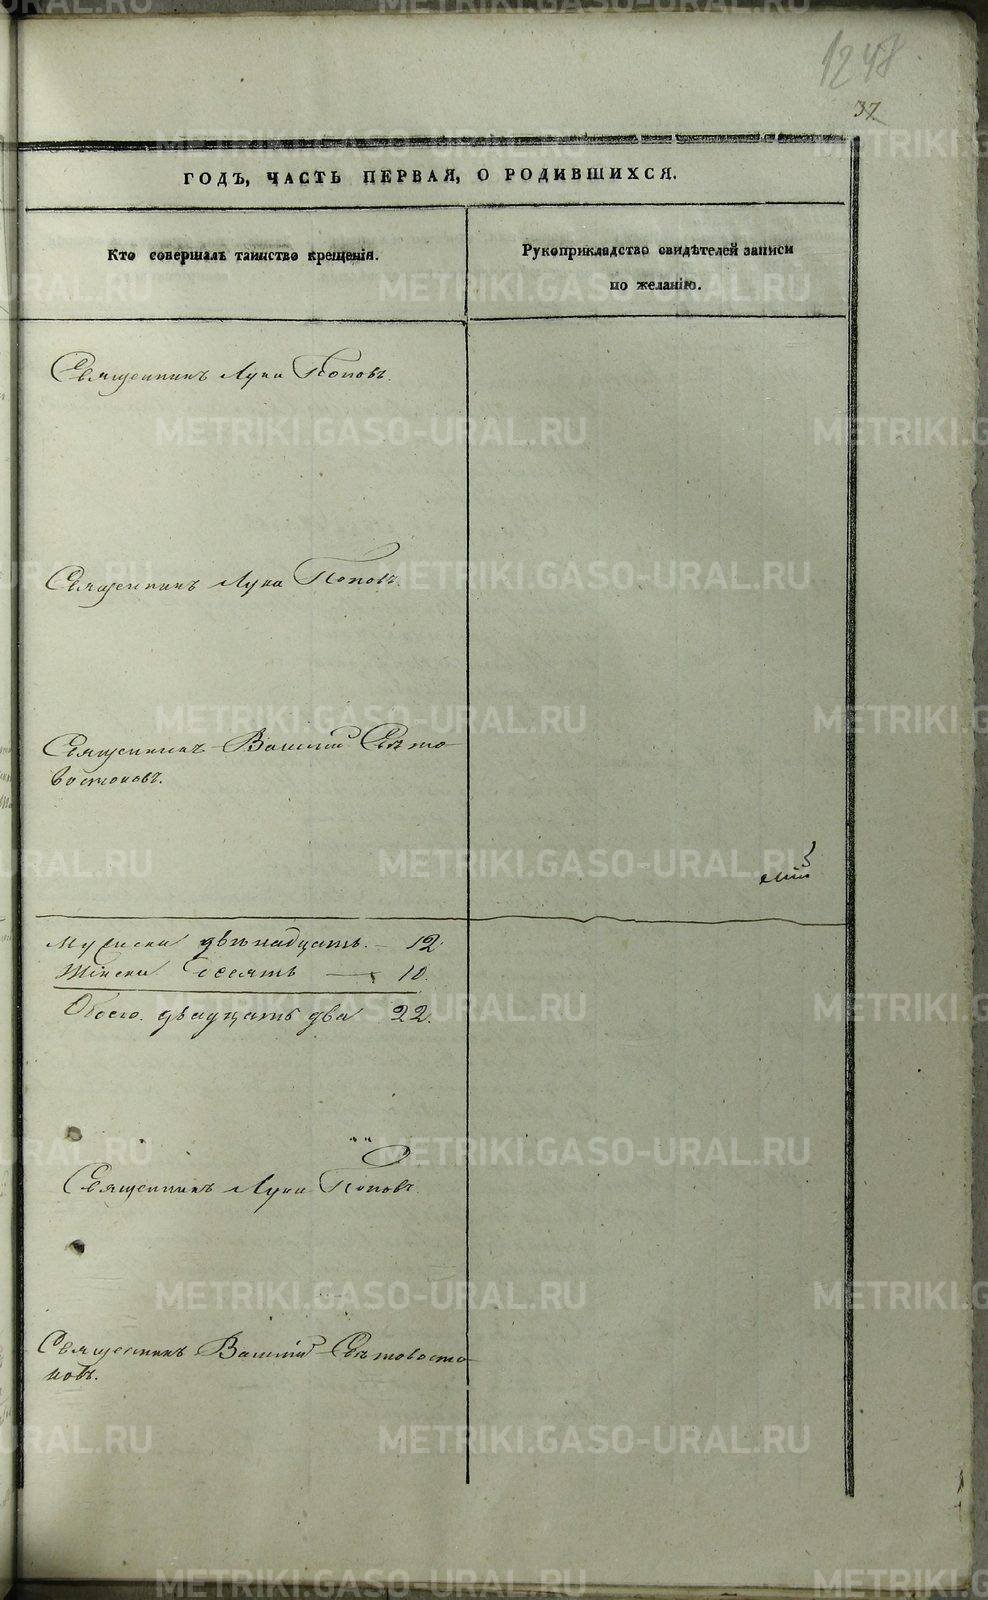 1248
37
ГОДЪ, ЧАСТЬ ПЕРВАЯ, О РОДИВШИХСЯ.
Кто совершалъ таинство крещенія.
Рукоприкладство свидѣтелей записи
по желанію.
Священникъ Лука Поповъ.
Священникъ Лука Поповъ.
Священникъ Василій Свѣто-
востоковъ.
Мужеска двѣнадцать. — 12
Женска десять — 10
Обоего. двадцать два 22.
Священникъ Лука Поповъ
Священникъ Василій Свѣтовосто-
ковъ.
METRIKI.GASO-URAL.RU